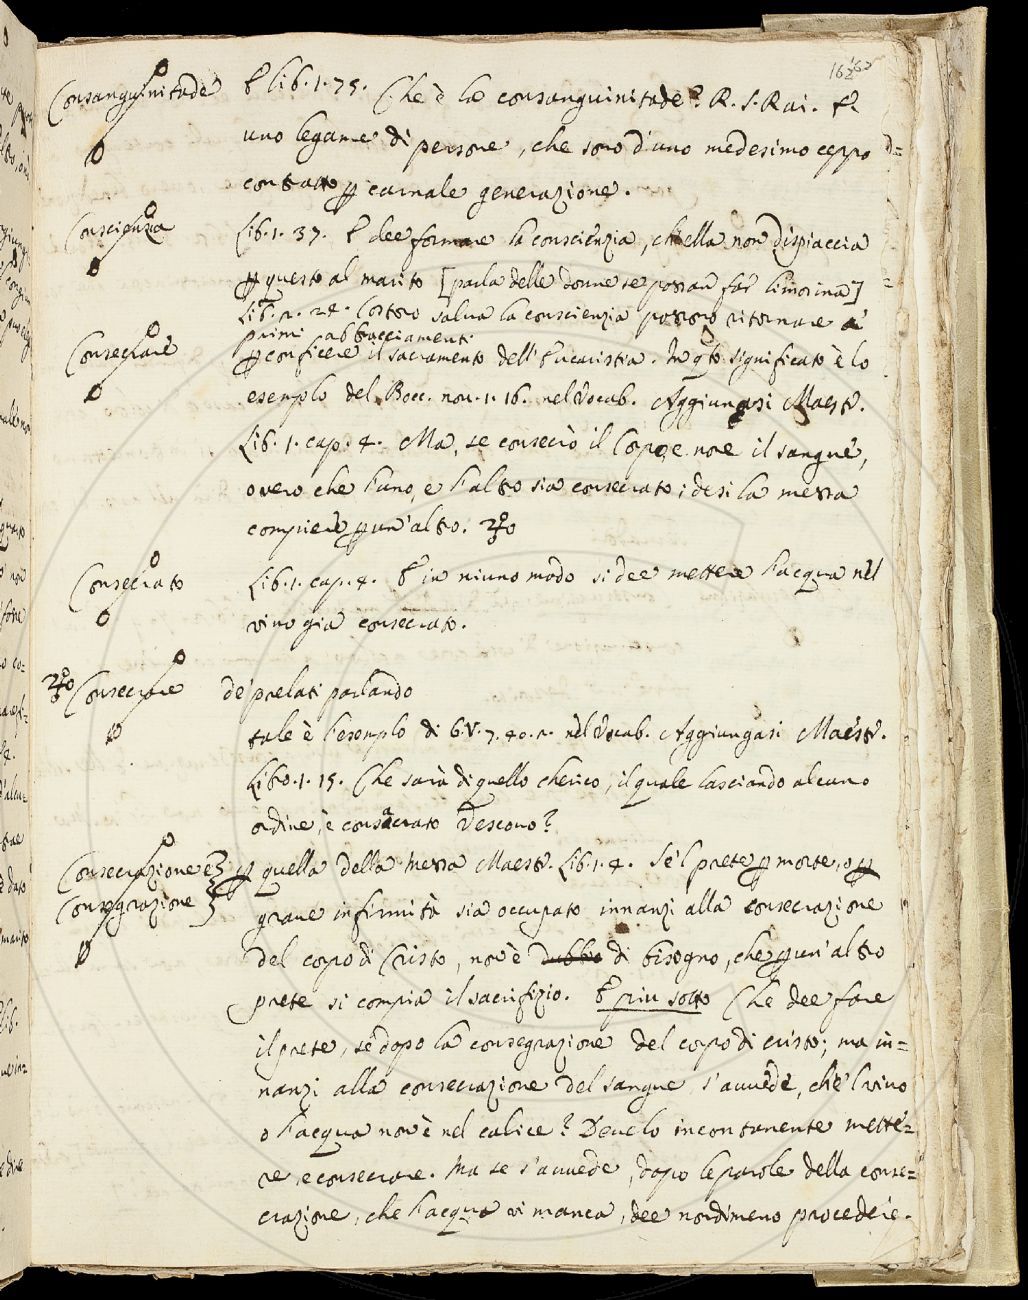 Consanguinitade E lib. 1. 75. Che è la consanguinitade? R. S. Rai. E
uno legame di persone, che sono d'uno medesimo ceppo d=
contratto p carnale generazione.
Conscienzia Lib. 1. 37. E dee formare la conscienzia, ch'ella non dispiaccia
p questo al marito [parla delle donne se possan far limosina]
Lib. 2. 24. Costoro salva la conscienzia possono ritornare a'
primi abbracciamenti
Consecrare p conficere il sacramento dell'Eucaristia. In qto significato è lo
esemplo del Bocc. nov. 1. 16. nel Vocab. Aggiungasi Maestr.
Lib. 1. cap. 4. Ma, se consecrò il Corpo, e non il sangue,
overo che l'uno, e l'altro sia consecrato; desi la messa
compiere p un'altro.
Consecrato Lib. 1. cap. 4. E in niuno modo si dee mettere l'acqua nel
vino già consecrato.
Consecrare de' prelati parlando
tale è l'esemplo di G. V. 7. 40. 2. nel Vocab. Aggiungasi Maestr.
Libo. 1. 15. Che sarà di quello cherico, il quale lasciando alcuno
ordine, è consacrato Vescovo?
Consecrazione e p quella della Messa Maestr. Lib. 1. 4. Se'l prete p morte, o p
Consegrazione grave infermità sia occupato innanzi alla consecrazione
del corpo di Cristo, non è dubbio di bisogno, che p un'altro
prete si compia il sacrifizio. E più sotto Che dee fare
il prete, se dopo la consegrazione del corpo di cristo; ma in=
nanzi alla consecrazione del sangue s'avvede, che'l vino
o l'acqua non è nel calice? Develo incontanente mette=
re, e consecrare. Ma se s'avvede, dopo le parole della conse=
crazione, che l'acqua vi manca, dee nondimeno procedere.